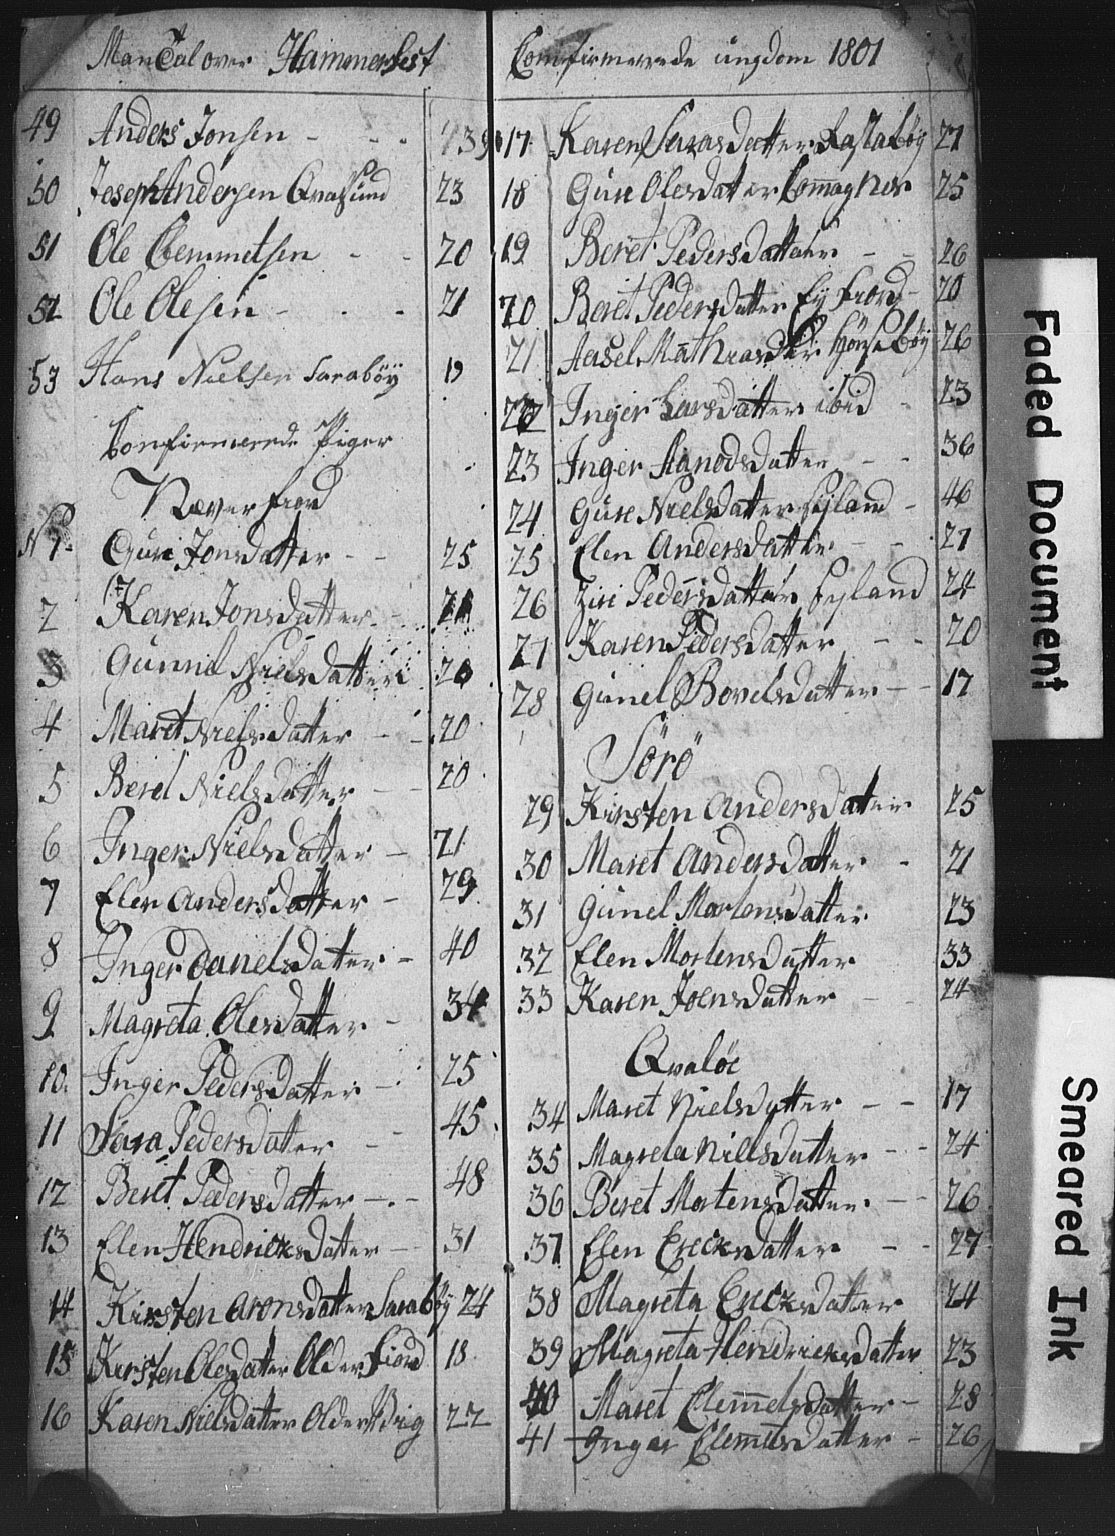 ManTal over Hammerfest
49 Anders Jonsen - - - 39
50 Joseph Andersen Qvalsund 23
51 Ole Clemmetsen - - 20
52 Ole Olesen - - - 21
53 Hans Nielsen Saraböÿ 19
Confirmerede Piger
Næverfiord
N 1. Guri Jonsdatter - - 25
2 Karen Jonsdatter - 21
3 Gunnil Nielsdatter 20
4 Maret Nielsdatter - - 20
5 Berel Nielsdatter - - 20
6 Inger Nielsdatter - 21
7 Elen Andersdatter - 29
8 Inger Danelsdatter - 40
9 Magreta Olesdatter - 34
10. Inger Pedersdatter - 25
11 Sara Pedersdatter - - 45
12 Beret Pedersdatter - - 48
13 Elen Hendricksdatter - 31
14 Kirsten Aronsdatter Saraböÿ 24
15 Kirsten Olesdatter Olderfiord 18
16 Karen Nielsdatter Older Vig 22
Comfirmerede ungdom 1801
17. Karen Sarasdatter Rastabög 27
18 Gure Olesdatter Comagnes 25
19 Beret Pedersdatter - - 26
20 Beret Pedersdatter Eÿfiord - 20
21 Aasel Mathiasdtr Hönseböÿ 26
22 Inger Larsdatter ibid - 23
23 Inger Aanodsdatter - - 36
24 Gure Nielsdatter Sÿland - 46
25 Elen Andersdatter - - 27
26 Ziri Pedersdatter Sÿland 24
27 Karen Pedersdatter - - 20
28 Gunel Bovelsdatter - - 17
Sörö
29 Kirsten Andersdatter 25
30 Maret Andersdatter - 21
31 Gunel Mortensdatter 23
32 Elen Mortensdatter 33
33 Karen Joensdatter - 24
Qvaløe
34 Maret Nielsdatter - - 17
35 Magrela Nillsdatter - - 24
36 Beret Mortensdatter - - 26
37 Elen Ericksdatter - - 27
38 Magreta Ericksdatter 24
39 Magreta Hendricksdatter 23
40 Maret Clem̅elsdatter - 28
41 Inger Clem̅etsdatter - 26
Faded Document
Smeared Ink